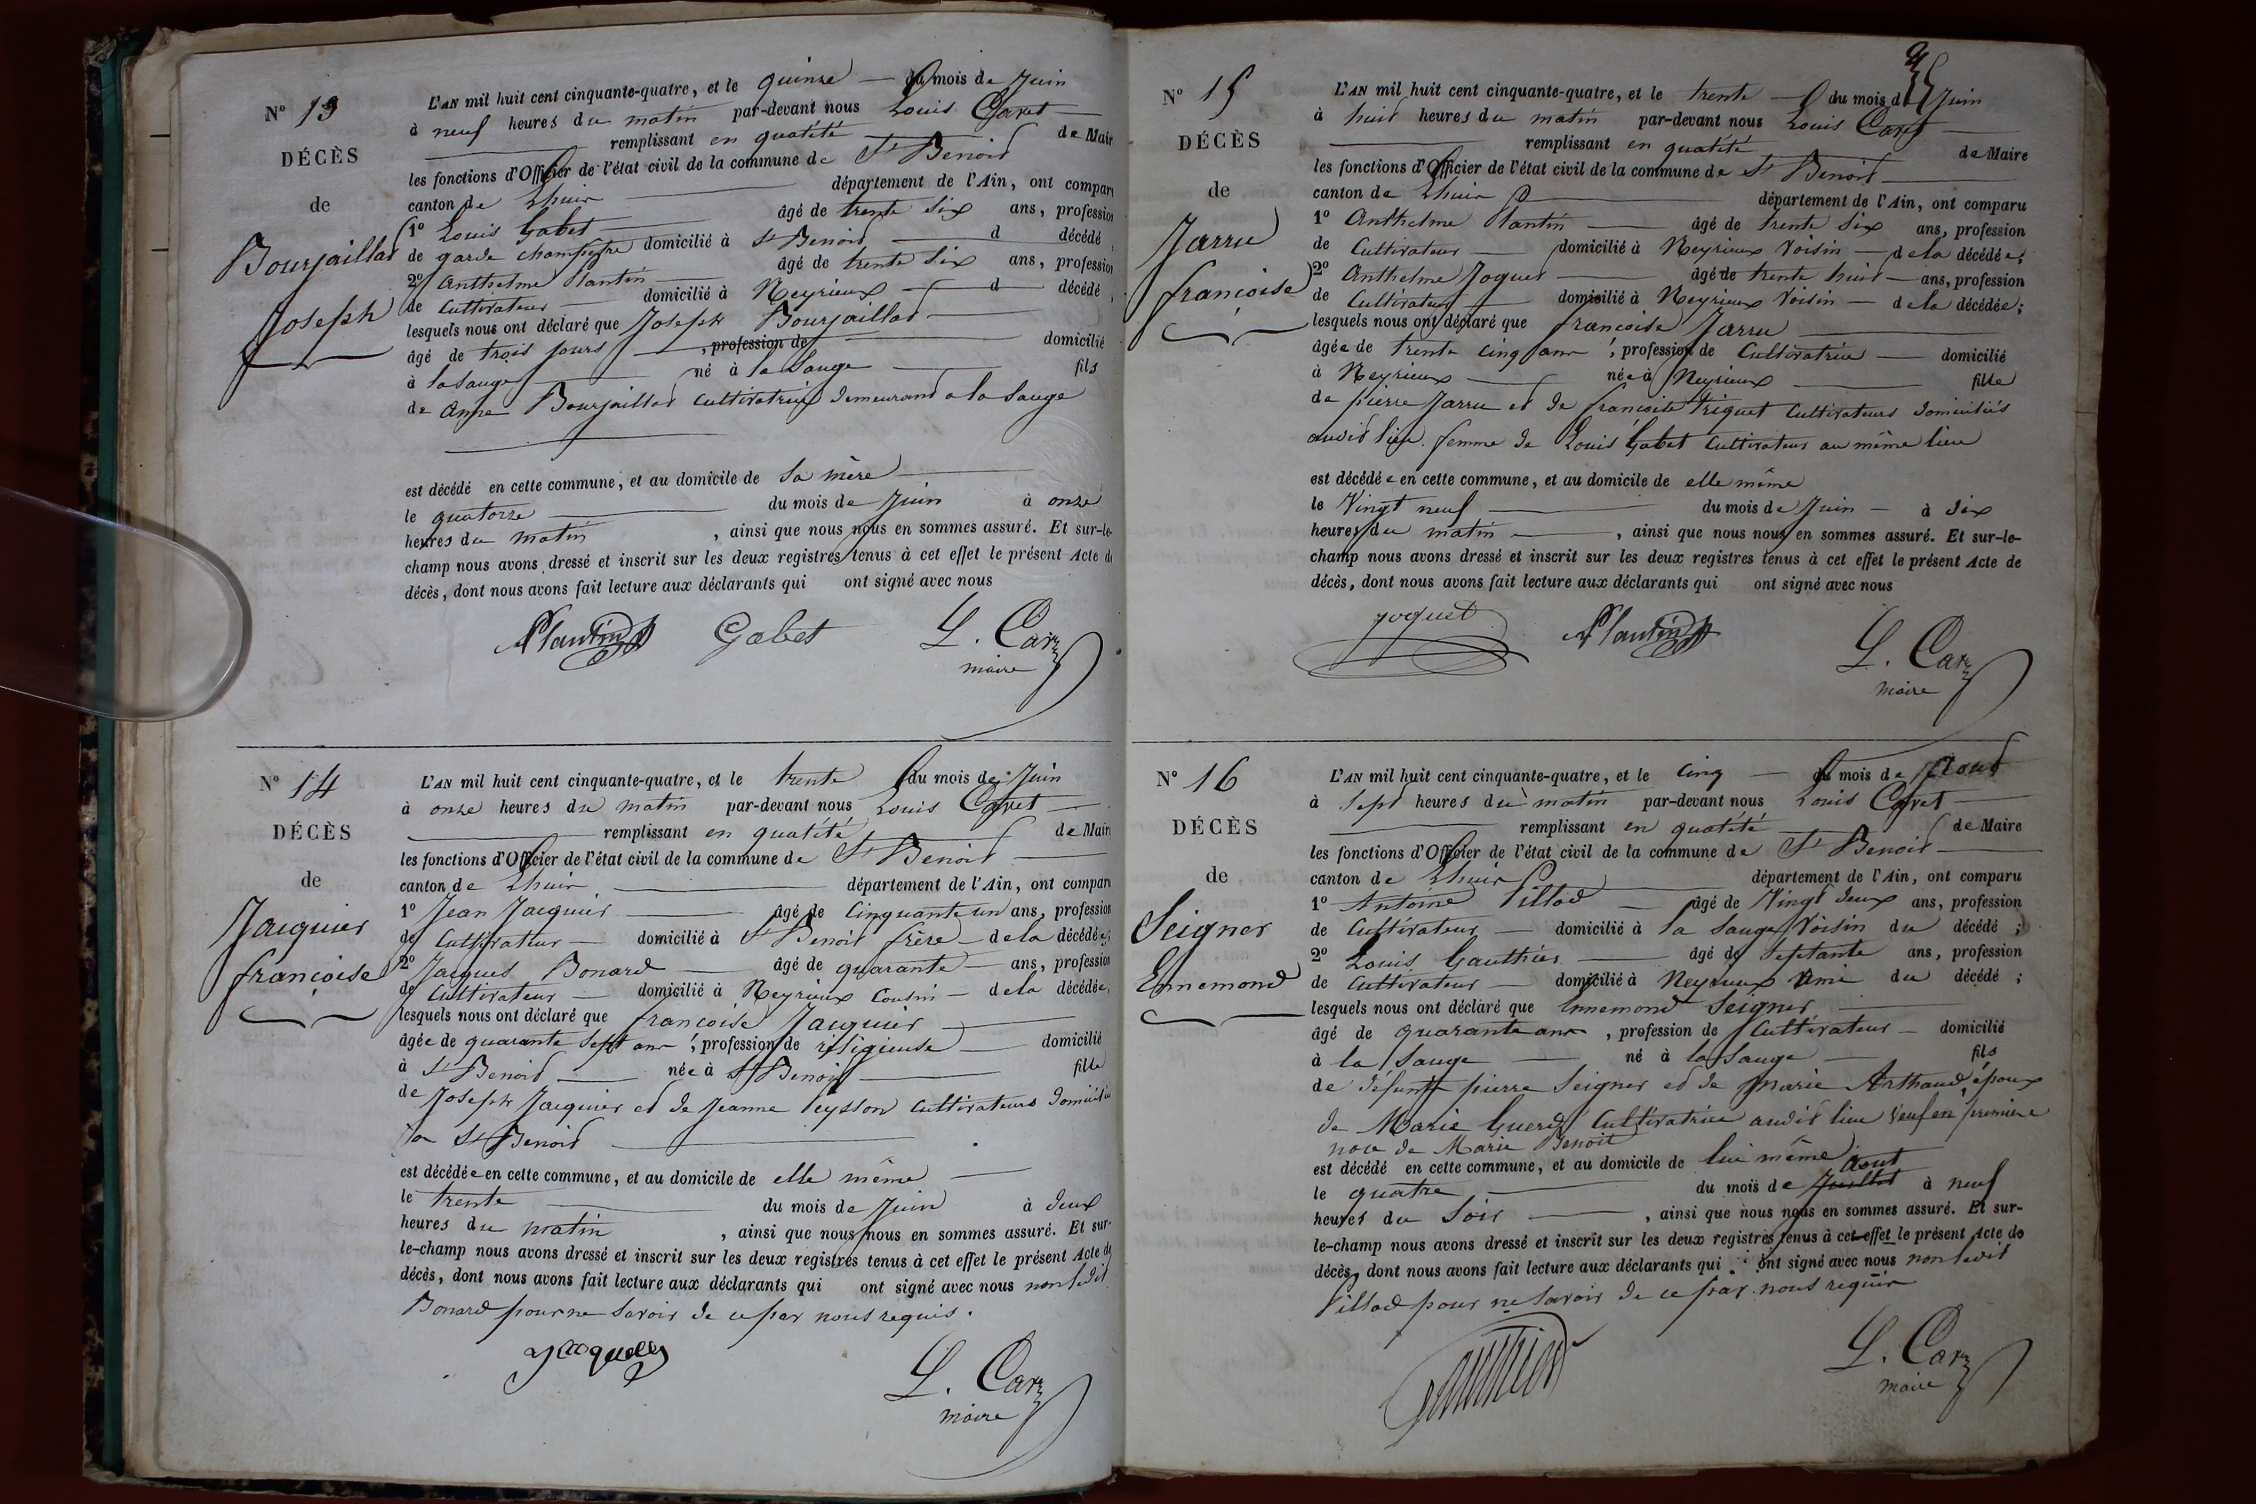 N° 13
DÉCÈS
de
Bourjaillad
Joseph
L'AN mil huit cent cinquante-quatre, et le quinze du mois de Juin
à neuf heures du matin par-devant nous Louis Carret
remplissant en qualité de Maire
les fonctions d'Officier de l'état civil de la commune de St Benoit
canton de Lhuis département de l'Ain, ont comparu
1° Louis Gabet âgé de trente six ans, profession
de garde champêtre domicilié à St Benoit d décédé
2° Anthelme Plantin âgé de trente six ans, profession
de Cultivateur domicilié à Neyrieux d décédé,
lesquels nous ont déclaré que Joseph Bourjaillad
âgé de trois jours, profession de domicilié
à la Sauge né à la Sauge fils
de Anne Bourjaillad Cultivatrice demeurant a la Sauge
est décédé en cette commune, et au domicile de Sa mère
le quatorze du mois de Juin à onze
heures du matin, ainsi que nous nous en sommes assuré. Et sur-le-
champ nous avons dressé et inscrit sur les deux registres tenus à cet effet le présent Acte de
décès, dont nous avons fait lecture aux déclarants qui ont signé avec nous
Plantin Gabet L. Carr
maire
N° 14
DÉCÈS
de
Jacquier
françoise
L'AN mil huit cent cinquante-quatre, et le trente du mois de Juin
à onze heures du matin par-devant nous Louis Carret
remplissant en qualité de Maire
les fonctions d'Officier de l'état civil de la commune de St Benoit
canton de Lhuis département de l'Ain, ont comparu
1° Jean Jacquier âgé de Cinquante un ans, profession
de Cultivateur domicilié à St Benoit frère de la décédée,
2° Jacques Bonard âgé de quarante ans, profession
de Cultivateur domicilié à Neyrieux Cousin de la décédée,
lesquels nous ont déclaré que françoise Jacquier
âgée de quarante Sept ans, profession de religieuse domicilié
à St Benoit née à St Benoit fille
de Joseph Jacquier et de Jeanne Peysson Cultivateurs domiciliés
a St Benoit
est décédée en cette commune, et au domicile de elle même
le trente du mois de Juin à deux
heures du matin, ainsi que nous nous en sommes assuré. Et sur-
le-champ nous avons dressé et inscrit sur les deux registres tenus à cet effet le présent Acte de
décès, dont nous avons fait lecture aux déclarants qui ont signé avec nous non ledit
Bonard pour ne Savoir de ce par nous requis.
L. Carr
maire
N° 15
DÉCÈS
de
Jarru
françoise
L'AN mil huit cent cinquante-quatre, et le trente du mois de Juin
à huit heures du matin par-devant nous Louis Carret
remplissant en qualité de Maire
les fonctions d'Officier de l'état civil de la commune de St Benoit
canton de Lhuis département de l'Ain, ont comparu
1° Anthelme Plantin âgé de trente Six ans, profession
de Cultivateur domicilié à Neyrieux Voisin de la décédée;
2° Anthelme Joquet âgé de trente huit ans, profession
de Cultivateur domicilié à Neyrieux Voisin de la décédée;
lesquels nous ont déclaré que françoise Jarru
âgée de trente cinq ans, profession de Cultivatrice domicilié
à Neyrieux née à Neyrieux fille
de pierre Jarru et de françoise Triquet Cultivateurs domiciliés
audit lieu. femme de Louis Gabet Cultivateur au même lieu
est décédée en cette commune, et au domicile de elle même
le Vingt neuf du mois de Juin à Six
heures du matin, ainsi que nous nous en sommes assuré. Et sur-le-
champ nous avons dressé et inscrit sur les deux registres tenus à cet effet le présent Acte de
décès, dont nous avons fait lecture aux déclarants qui ont signé avec nous
joquet Plantin L. Carr
maire
N° 16
DÉCÈS
de
Seigner
Ennemond
L'AN mil huit cent cinquante-quatre, et le Cinq du mois de Aout
à Sept heures du matin par-devant nous Louis Carret
remplissant en qualité de Maire
les fonctions d'Officier de l'état civil de la commune de St Benoit
canton de Lhuis département de l'Ain, ont comparu
1° Antoine Pillod âgé de Vingt deux ans, profession
de Cultivateur domicilié à la Sauge Voisin du décédé;
2° Louis Gauthier âgé de Septante ans, profession
de Cultivateur domicilié à Neyrieux Ami du décédé;
lesquels nous ont déclaré que Ennemond Seigner
âgé de quarante ans, profession de Cultivateur domicilié
à la Sauge né à la Sauge fils
de défunt pierre Seigner et de marie Arthaud, époux
de Marie Guerd Cultivatrice audit lieu Veuf en première
noce de Marie Benoit
est décédé en cette commune, et au domicile de lui même
Aout
le quatre du mois de Juillet à neuf
heures du Soir, ainsi que nous nous en sommes assuré. Et sur-
le-champ nous avons dressé et inscrit sur les deux registres tenus à cet effet le présent Acte de
décès, dont nous avons fait lecture aux déclarants qui ont signé avec nous non ledit
Pillod pour ne Savoir de ce par nous requis
Gauthier L. Carr
maire